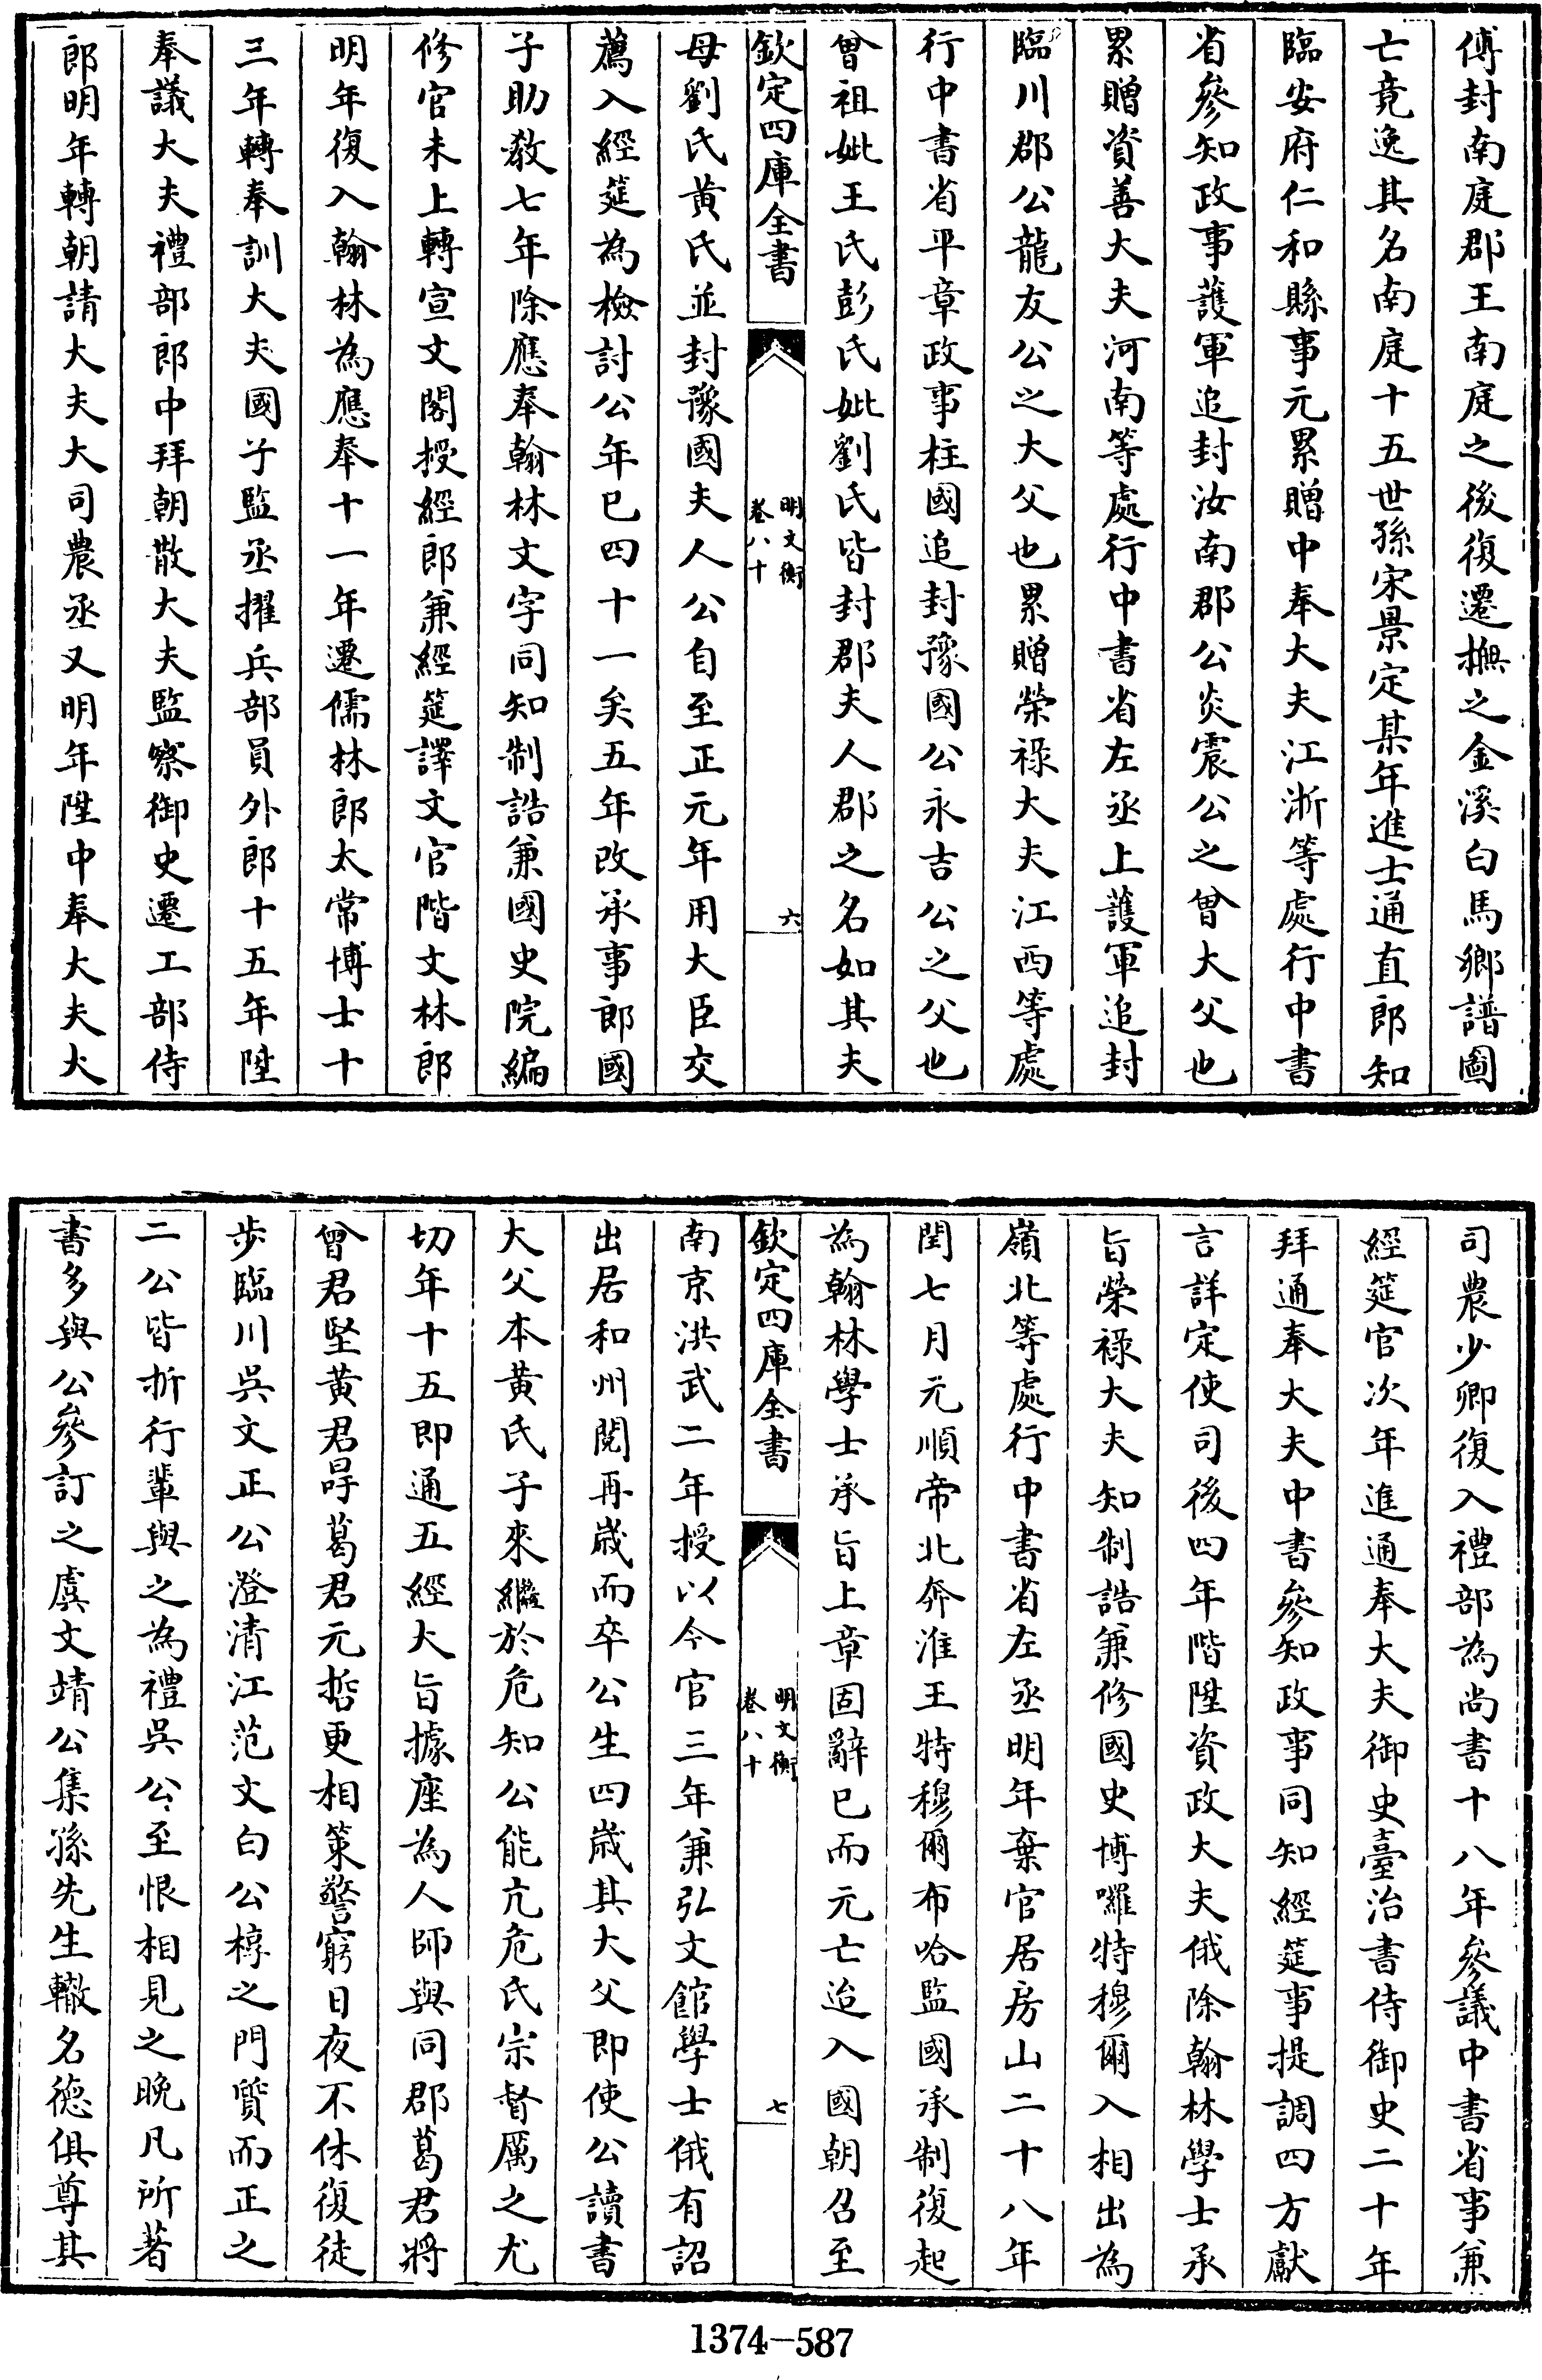 傅封南庭郡王南庭之後復遷撫之金溪白馬鄉譜圖
亡竟逸其名南庭十五世孫宋景定某年進士通直郎知
臨安府仁和縣事元累贈中奉大夫江浙等處行中書
省參知政事護軍追封汝南郡公炎震公之曾大父也
累贈資善大夫河南等處行中書省左丞上護軍追封
臨川郡公龍友公之大父也累贈榮祿大夫江西等處
行中書省平章政事柱國追封豫國公永吉公之父也
曾祖妣王氏彭氏妣劉氏皆封郡夫人郡之名如其夫
欽定四庫全書
明文衡
卷八十
六
母劉氏黃氏並封豫國夫人公自至正元年用大臣交
薦入經筵為檢討公年已四十一矣五年改承事郎國
子助教七年除應奉翰林文字同知制誥兼國史院編
修官未上轉宣文閣授經郎兼經筵譯文官階文林郎
明年復入翰林為應奉十一年遷儒林郎太常博士十
三年轉奉訓大夫國子監丞擢兵部員外郎十五年陞
奉議大夫禮部郎中拜朝散大夫監察御史遷工部侍
郎明年轉朝請大夫大司農丞又明年陞中奉大夫大
司農少卿復入禮部為尚書十八年參議中書省事兼
經筵官次年進通奉大夫御史臺治書侍御史二十年
拜通奉大夫中書參知政事同知經筵事提調四方獻
言詳定使司後四年階陞資政大夫俄除翰林學士承
旨榮祿大夫知制誥兼修國史博囉特穆爾入相出為
嶺北等處行中書省左丞明年棄官居房山二十八年
閏七月元順帝北奔淮王特穆爾布哈監國承制復起
為翰林學士承旨上章固辭已而元亡迨入國朝召至
欽定四庫全書
明文衡
卷八十
七
南京洪武二年授以今官三年兼弘文館學士俄有詔
出居和州閱再歲而卒公生四歲其大父即使公讀書
大父本黃氏子來繼於危知公能亢危氏宗督厲之尤
切年十五即通五經大旨據座為人師與同郡葛君將
曾君堅黃君㝵葛君元哲更相策警窮日夜不休復徒
步臨川吳文正公澄清江范文白公梈之門質而正之
二公皆折行輩與之為禮吳公至恨相見之晚凡所著
書多與公參訂之虞文靖公集孫先生轍名德俱尊其
1374-587